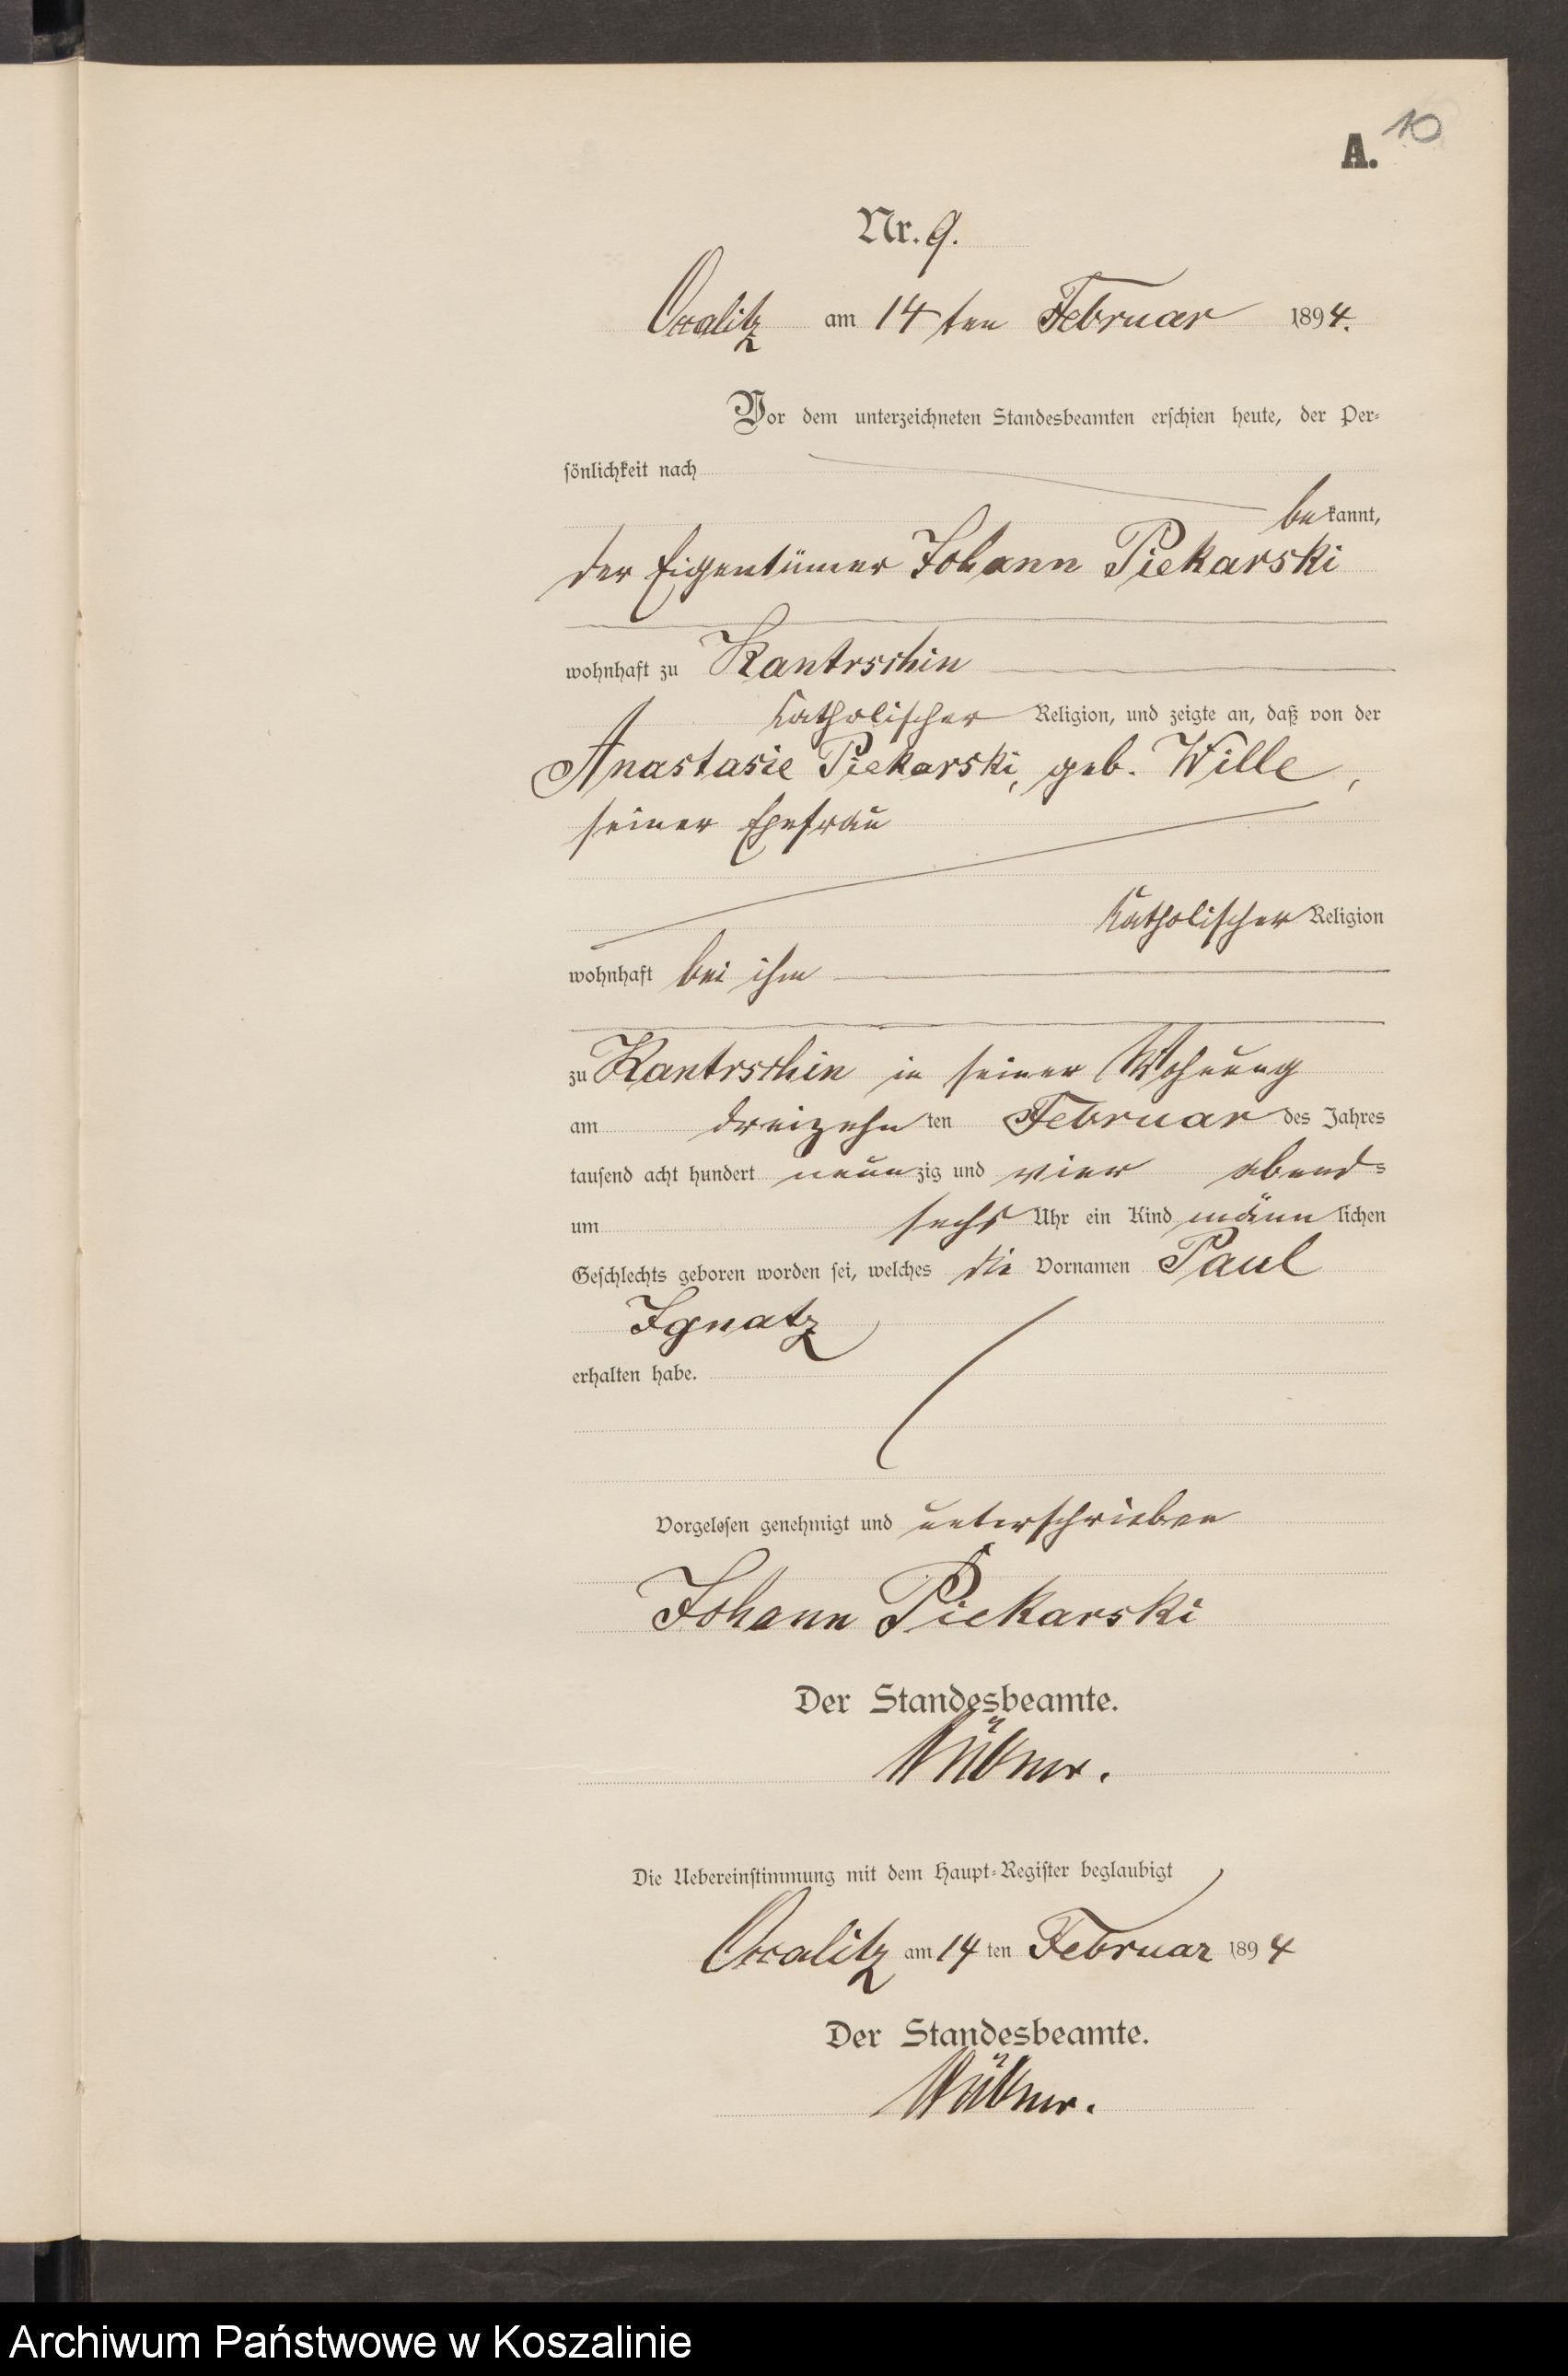 A. 10
Nr. 9.
Oxalitz am 14 ten Februar 1894.
Vor dem unterzeichneten Standesbeamten erschien heute, der Per-
sönlichkeit nach
be kannt,
der Eigentümer Johann Piekarski
wohnhaft zu Kantrschin
katholischer Religion, und zeigte an, daß von der
Anastasie Piekarski, geb. Wille,
seiner Ehefrau
katholischer Religion
wohnhaft bei ihm
zu Kantrschin in seiner Wohnung
am dreizehn ten Februar des Jahres
tausend acht hundert neun zig und vier abend-
um sechs Uhr ein Kind männ lichen
Geschlechts geboren worden sei, welches die Vornamen Paul
Ignatz
erhalten habe.
Vorgelesen genehmigt und unterschrieben
Johann Piekarski
Der Standesbeamte.
Die Uebereinstimmung mit dem Haupt-Register beglaubigt
Oxalitz am 14 ten Februar 1894
Der Standesbeamte.
Archiwum Państwowe w Koszalinie